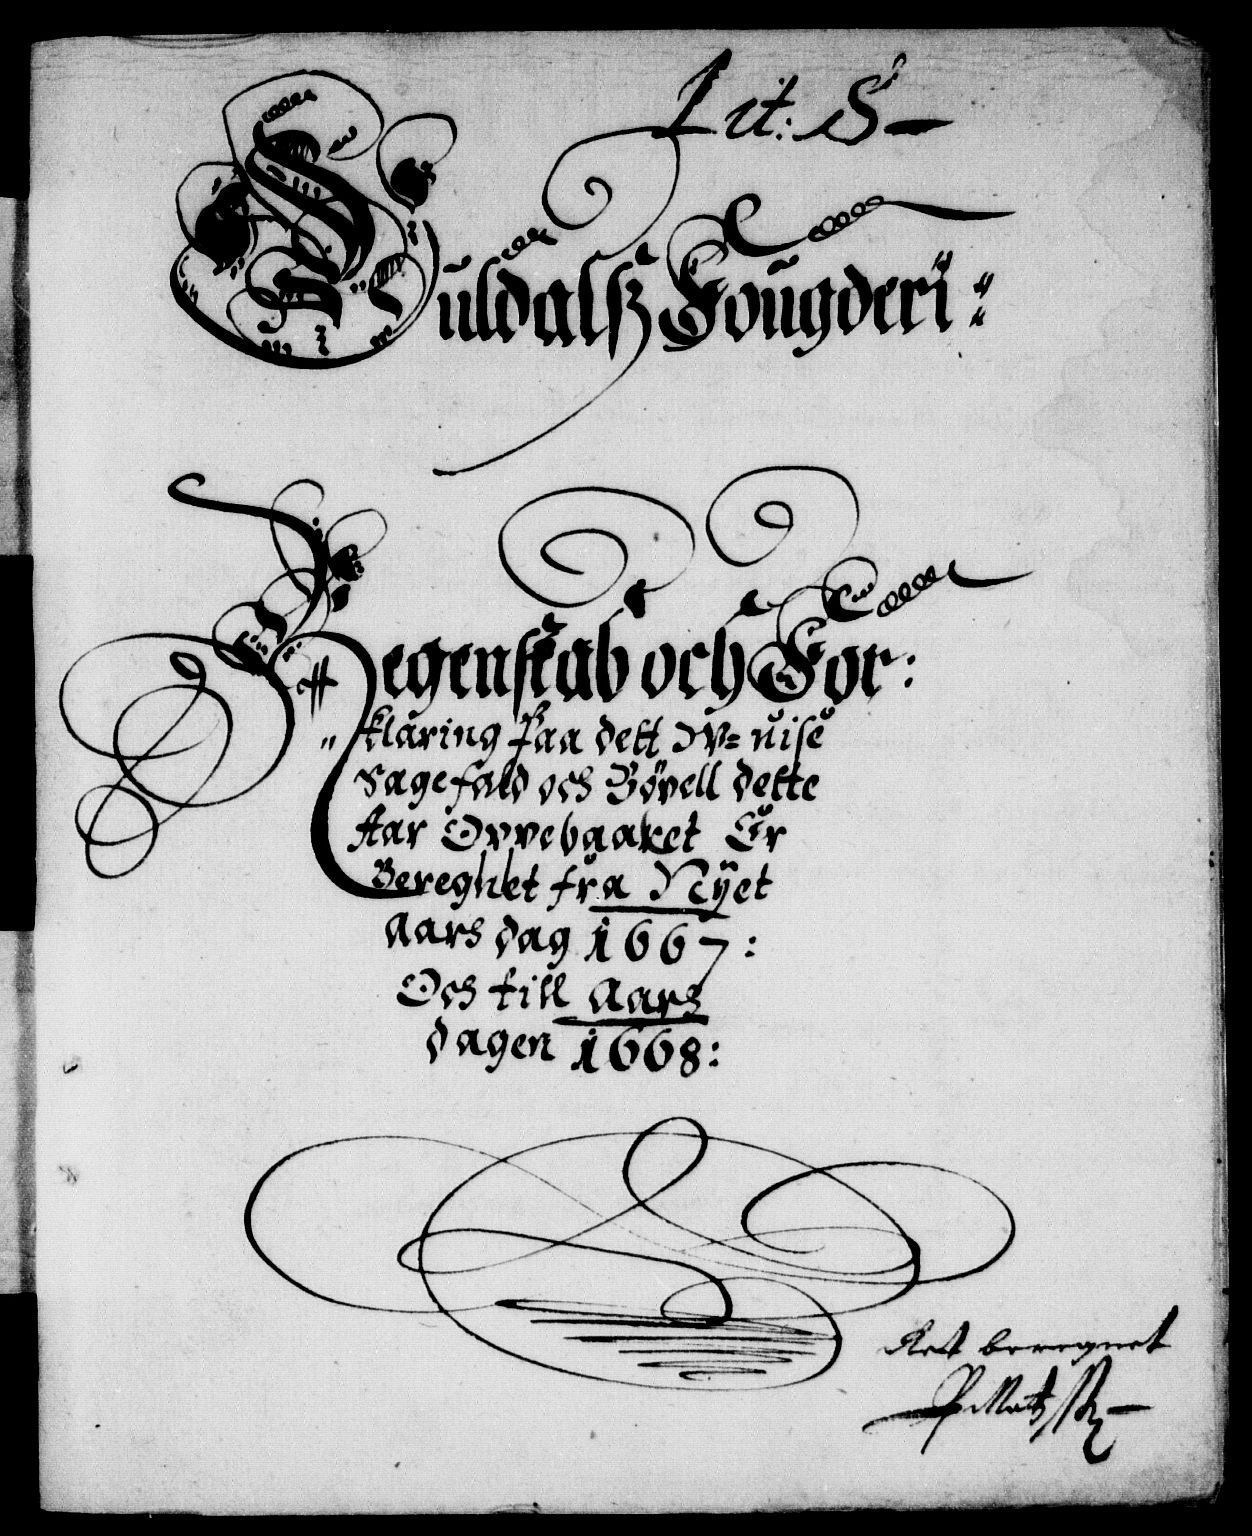 Lit: S
Suldalsz Fougderi:
Regenskab och For:
klaring paa dett Wuise
Sagefald och Böxell dette
Aar Oppebaaret Er
Beregnet fra Nyet
Aars dag 1667:
Och till Aars
dagen 1668:
Rett beregnet